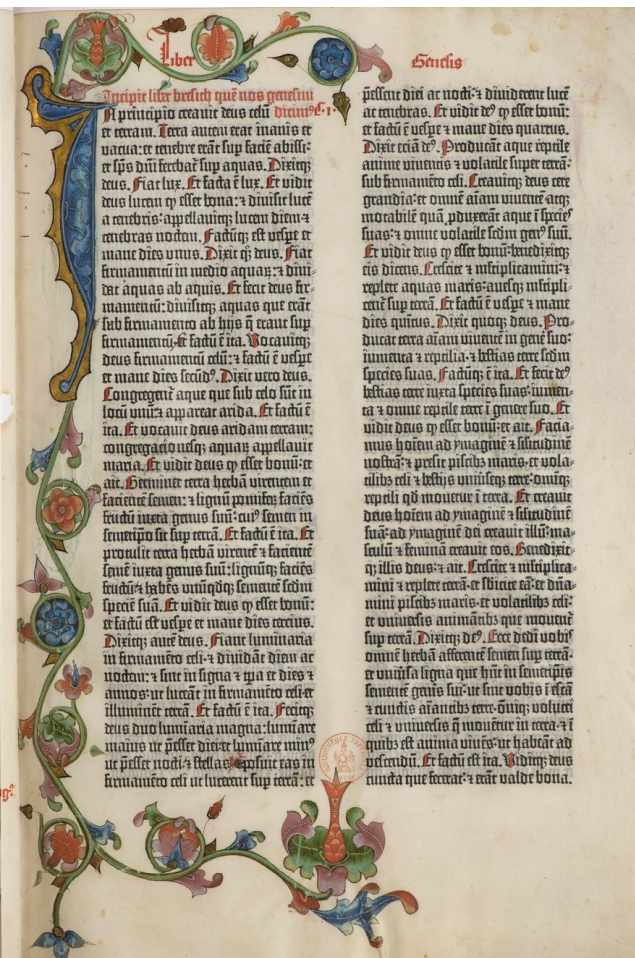 Liber
Genesis
Incipit liber bresich quē nos genesim
N principio creauit deus celū dicimꝰ C·1·
et terram. Terra autem erat inanis et
vacua: et tenebre erāt sup faciē abissi:
et spūs dn̄i ferebat͛ sup aquas. Dixitqꝫ
deus. Fiat lux. Et facta ē lux. Et vidit
deus lucem ꝙ esset bona: ⁊ diuisit lucē
a tenebris· appellauitqꝫ lucem diem ⁊
tenebras noctem. Factūqꝫ est vespe et
mane dies vnus. Dixit qꝫ deus. Fiat
firmamentū in medio aquaꝝ: ⁊ diui⸗
dat aquas ab aquis. Et fecit deus fir⸗
mamentū: diuisitqꝫ aquas que erāt
sub firmamento ab hijs q̄ erant sup
firmamentū: et factū ē ita. Vocauitqꝫ
deus firmamentū celū: ⁊ factū ē vespe
et mane dies secūdꝰ. Dixit vero deus.
Congregent͛ aque que sub celo sūt in
locū vnū: ⁊ appareat arida. Et factū ē
ita. Et vocauit deus aridam terram:
congregacionesqꝫ aquaꝝ appellauit
maria. Et vidit deus ꝙ esset bonū: et
ait. Germinet terra herbā virentem et
facientē semen: ⁊ lignū pomifeꝝ faciēs
fructū iuxta genus suū: cuiꝰ semen in
semetipo sit sup terrā. Et factū ē ita. Et
protulit terra herbā virentē ⁊ facientē
semē iuxta genus suū: lignūqꝫ faciēs
fructū ⁊ habēs vnūqdqꝫ sementē scdm
speciē suā. Et vidit deus ꝙ esset bonū:
et factū est vespe et mane dies tercius.
Dixitqꝫ autē deus. Fiant luminaria
in firmamēto celi· ⁊ diuidāt diem ac
noctem: ⁊ sint in signa ⁊ tp̄a et dies ⁊
annos· ut luceāt in firmamēto celi et
illuminēt terrā. Et factū ē ita. Fecitqꝫ
deus duo lumīaria magna: lumīare
maius ut p̄esset diei et lumīare minꝰ
ut p̄esset nocti: ⁊ stellas· ⁊ posuit eas in
firmamēto celi ut lucerent sup terrā: et
p̄essent diei ac nocti· ⁊ diuiderent lucē
ac tenebras. Et vidit deꝰ ꝙ esset bonū:
et factū ē vespe ⁊ mane dies quartus.
Dixit eciā deꝰ. Producāt aque reptile
anime viuentis ⁊ volatile super terrā·
sub firmamēto celi. Creauitqꝫ deus cete
grandia· et omnē aīam viuentē atqꝫ
motabilē quā ꝓduxerāt aque ī species
suas· ⁊ omne volatile scdm genꝰ suū.
Et vidit deus ꝙ esset bonū· benedixitqꝫ
eis dicens. Crescite ⁊ m̄ltiplicamini· ⁊
replete aquas maris· auesqꝫ m̄ltipli⸗
cent͛ sup terrā. Et factū ē vespe ⁊ mane
dies quītus. Dixit quoqꝫ deus. Pro⸗
ducat terra aīam viuentē in gene͛ suo·
iumenta ⁊ reptilia· ⁊ bestias terre scdm
species suas. Factūqꝫ ē ita. Et fecit deꝰ
bestias terre iuxta species suas· iumen⸗
ta ⁊ omne reptile terre ī genere suo. Et
vidit deus ꝙ esset bonū· et ait. Facia⸗
mus hoīem ad ymaginē ⁊ silitudinē
nostrā· ⁊ presit piscibꝫ maris· et vola⸗
tilibꝫ celi ⁊ bestijs vniūseqꝫ terre· omīqꝫ
reptili qd mouetur ī terra. Et creauit
deus hoīem ad ymaginē ⁊ silitudinē
suā· ad ymaginē dei creauit illū· ma⸗
sculū ⁊ feminā creauit eos. Benedixit⸗
qꝫ illis deus· ⁊ ait. Crescite ⁊ m̄ltiplica⸗
mini ⁊ replete terrā· et sbicite eā· et dn̄a⸗
mini piscibꝫ maris· et volatilibꝫ celi·
et vniuersis animātibꝫ que mouent͛
sup terrā. Dixitqꝫ deꝰ. Ecce dedi vobis
omnē herbā afferentē semen sup terrā·
et vniūsa ligna que hn̄t in semetipis
sementē genīs sui· ut sint vobis ī escā
⁊ cunctis aīantibꝫ terre· om̄iqꝫ volucri
celi ⁊ vniuersis q̄ mouent͛ in terra· ⁊ ī
quibꝫ est anima viuēs· ut habeāt ad
vescendū. Et factū est ita. Viditqꝫ deus
cuncta que fecerat· ⁊ erāt valde bona.